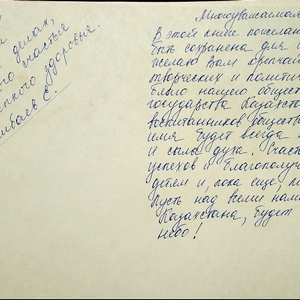 делах,
счастья
здоровья.
С.
Многоуважаемая
В этой книге пожелан
быть сохранена для
желаю Вам крепкого
творческих и политич
нашего общест
государства Казахст
воспитанников общества
имя будет всегда
и сила духа. Счаст
успехов и благополуч
детям и, пока еще,
Пусть над всеми нами
Казахстана, будет
небо!